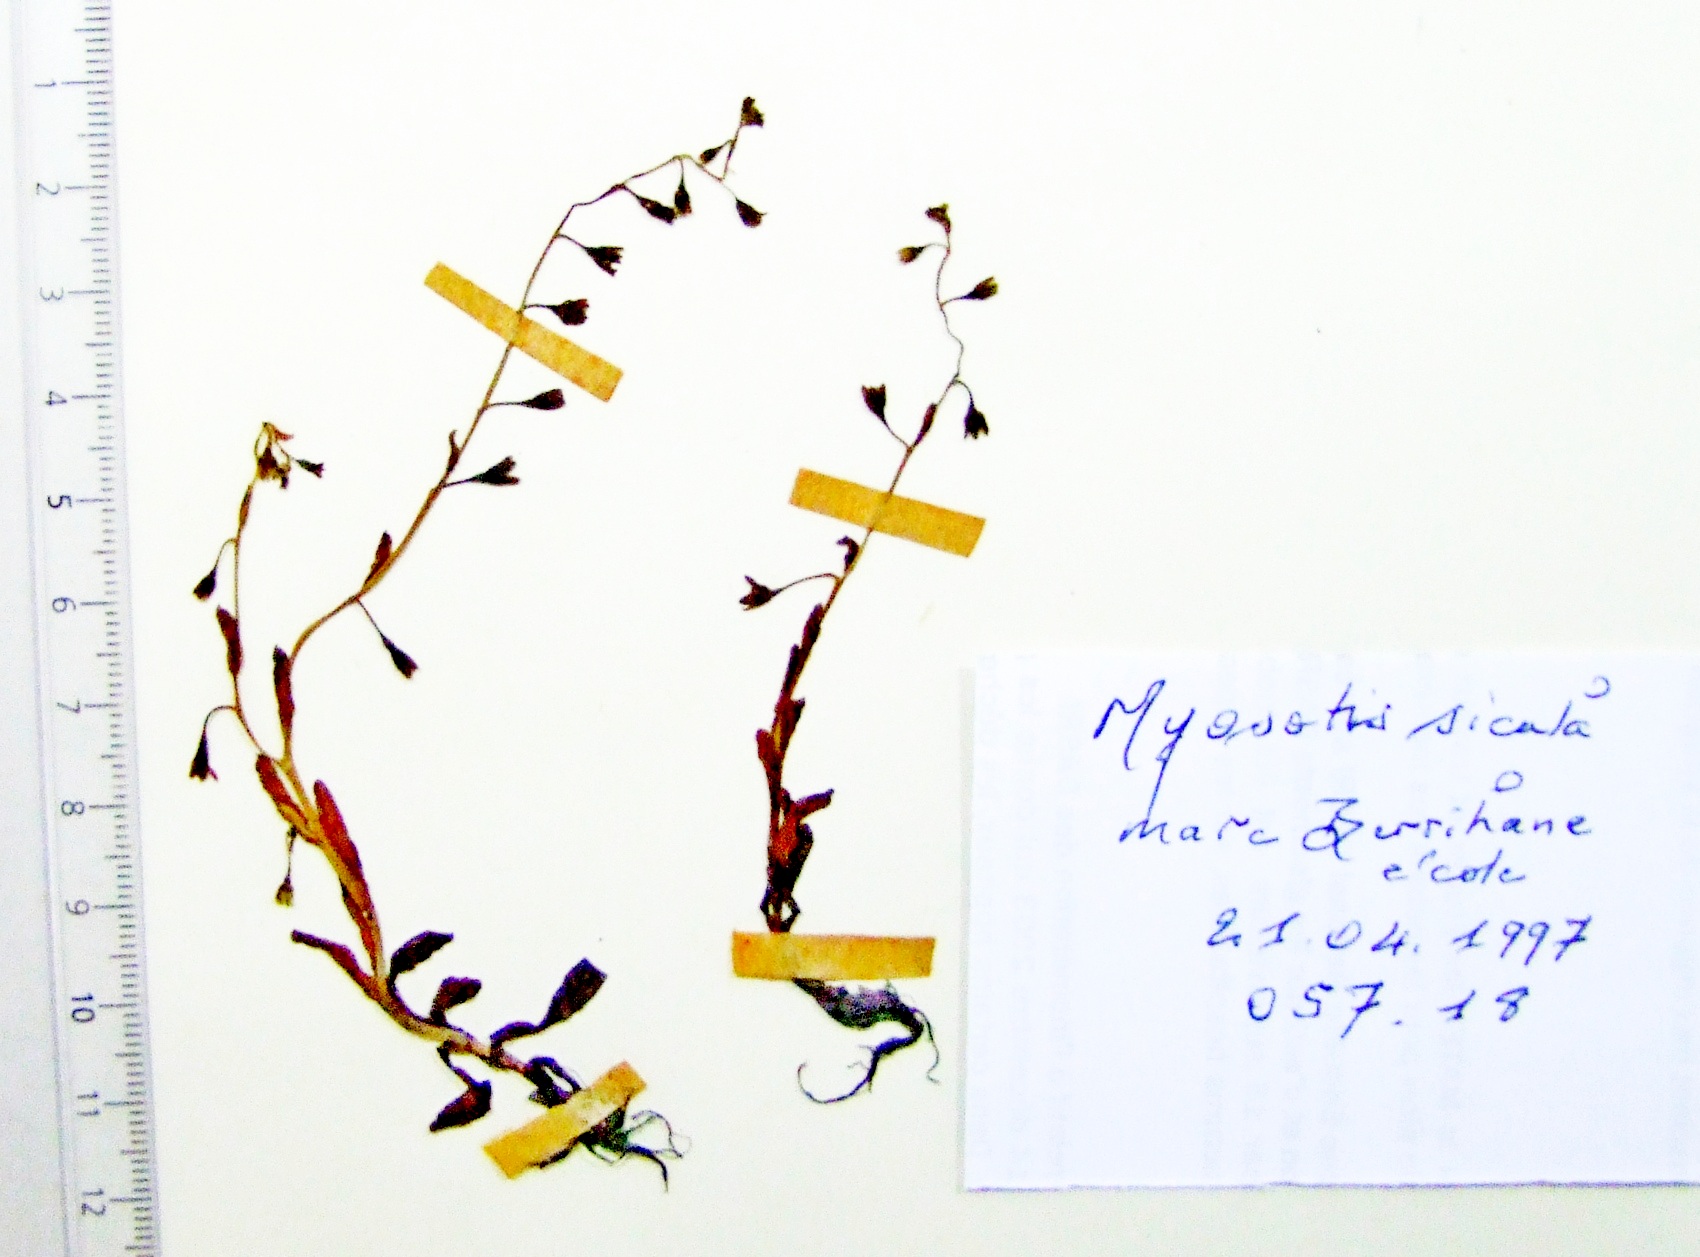 1
2
3
4
5
6
7
8
9
10
11
12
Myosotis sicula
mare Zurrihane
école
21.04.1997
057.18